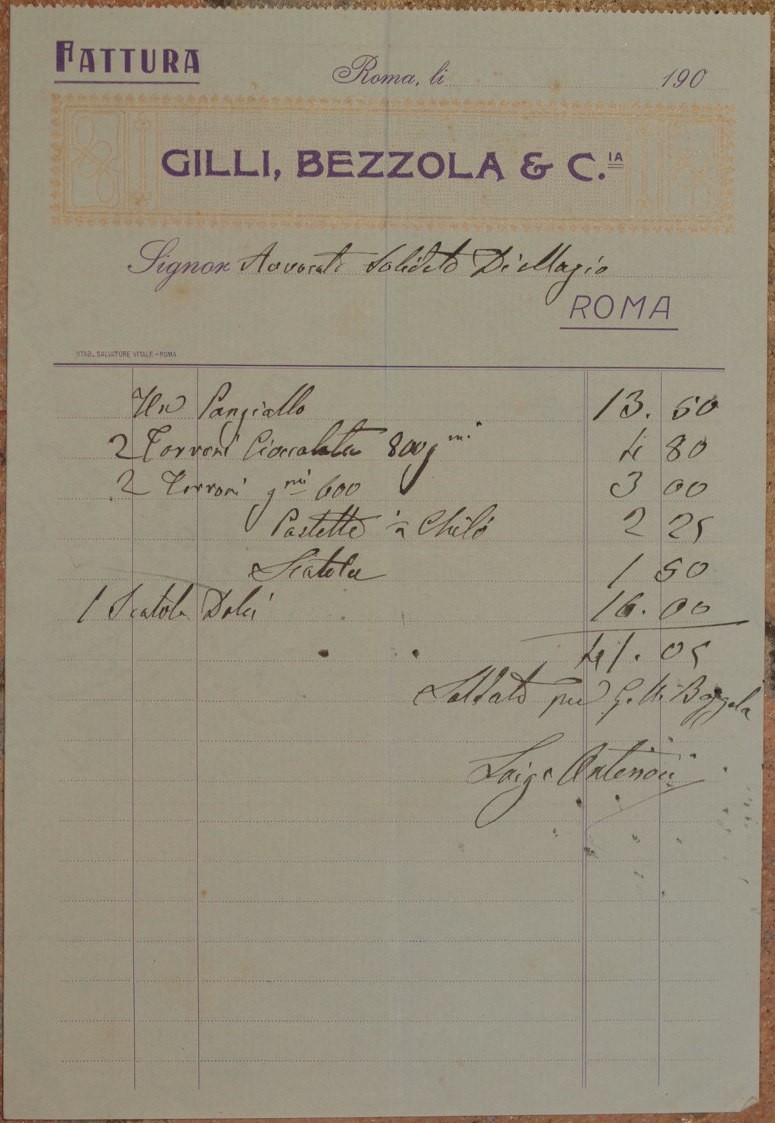 FATTURA
Roma, li 190
GILLI, BEZZOLA & C.IA
Signor Avvocato Di Magio
ROMA
STAB. SALVATORE VITALE - ROMA
Un Pangiallo 13. 50
2 Torroni Cioccolata 800 gmi 4 80
2 Torroni gmi 600 3 00
Pastette ½ Chilo 2 25
Scatola 1 50
1 Scatola Dolci 16. 00
41. 05
Saldato per Gilli Bezzola
Luigi Antenori